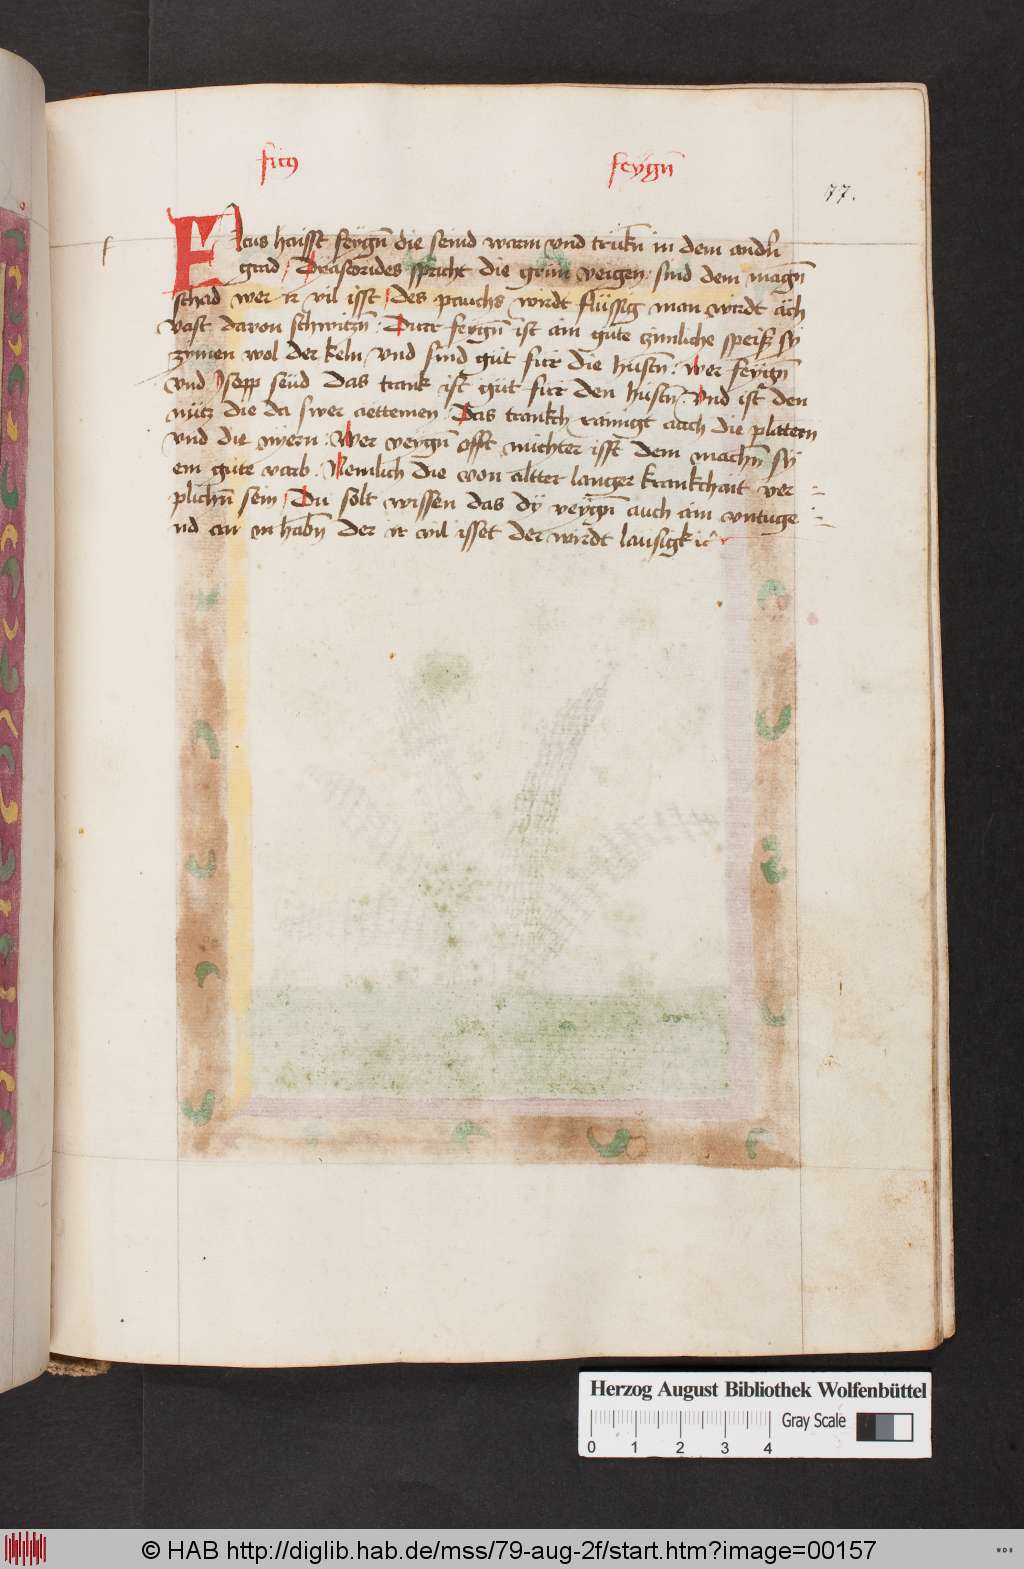 ficus feygn̄
77.
f
Ficus haisst feygn̄ die seind warm vnd trükn̄ in dem andr̄n
grad / Dyascorides spricht die grün veigen sind dem magn̄
schad wer ir vil isst / des pauchs wirdt flüssig man wirdt ach
vast davon schwitzn̄ . Dürr feygn̄ ist ain güte zimliche speiß sy
zymen wol der keln vnd sind güt für die hüstn̄ : Wer feygn̄
vnd Isopp seud das trank ist güt für den hüstn̄ : Vnd ist den
nütz die da swer aettemen / Das tranckh rainigt auch die plattern
vnd die nyern : Wer veygn̄ offt nüchter isst dem machn̄ sy
ein güte varb . Nemlich die von altter langer krankchait ver
plichn̄ sein / Du solt wissen das dy veygn̄ auch ain vntuge
nd an in habn̄ der ir vil isset der wirdt lausigk ꝛc
Herzog August Bibliothek Wolfenbüttel
Gray Scale
0 1 2 3 4
© HAB http://diglib.hab.de/mss/79-aug-2f/start.htm?image=00157